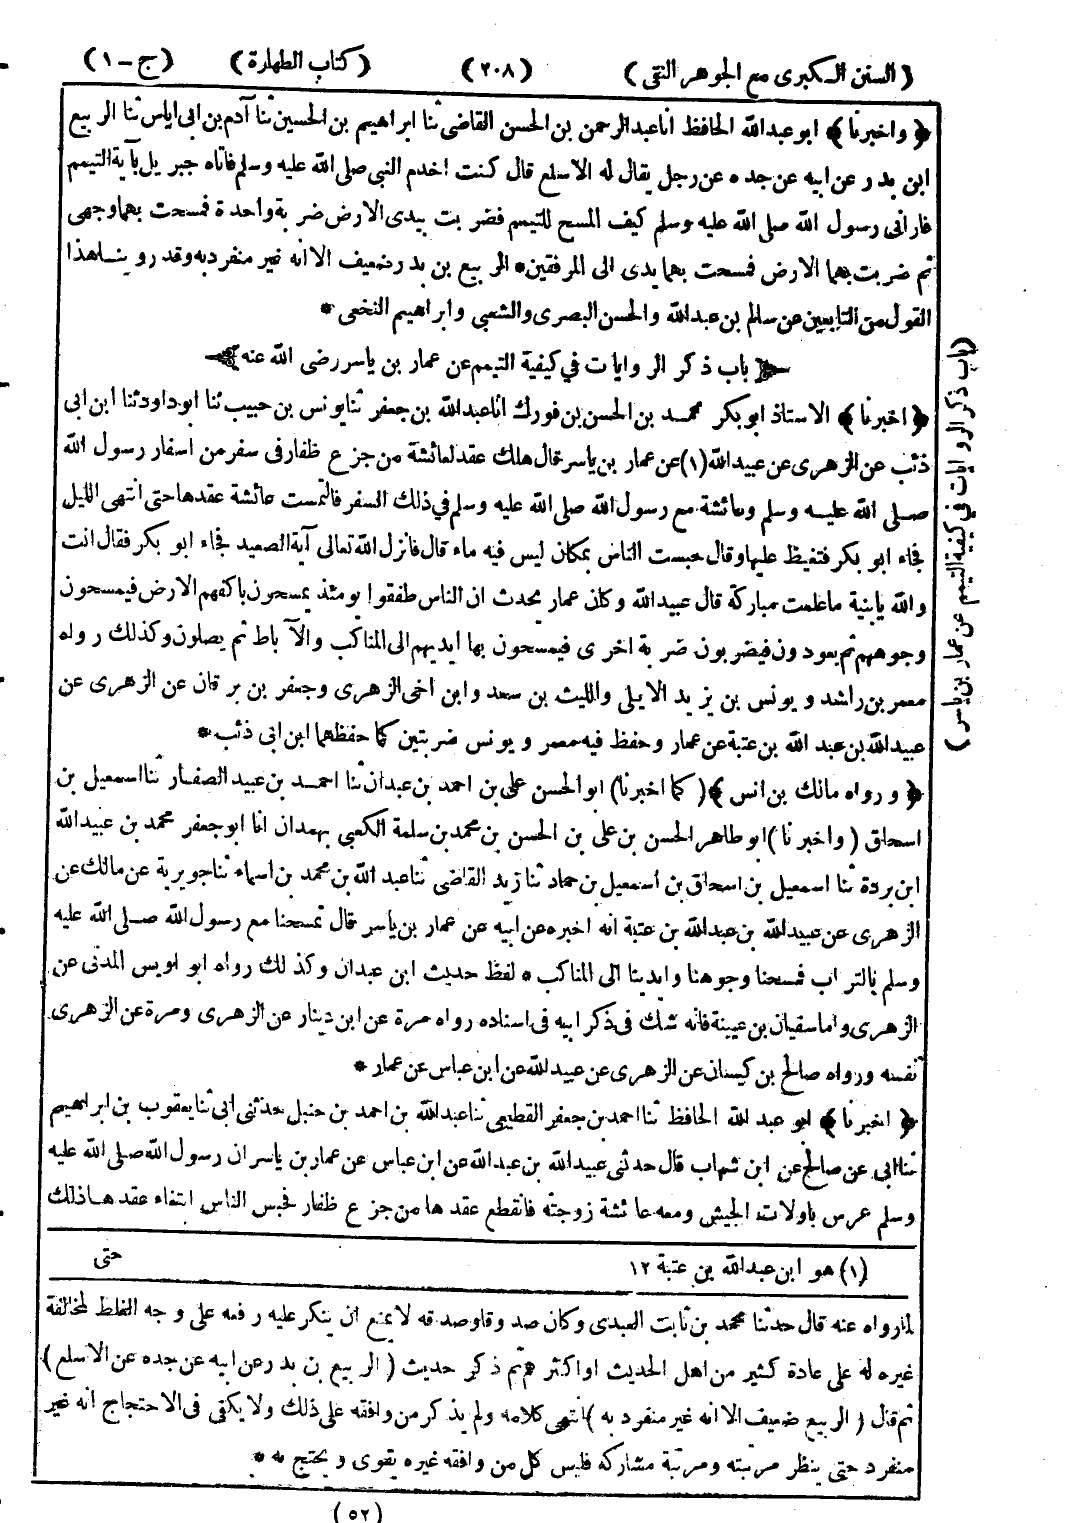 (السنن الكبرى مع الجوهر النقى) (٢٠٨) (كتاب الطهارة) (ج-١)
﴿ واخبرنا ﴾ ابو عبد الله الحافظ انا عبد الرحمن بن الحسن القاضى ثنا ابراهيم بن الحسين ثنا آدم بن ابى اياس ثنا الربيع
ابن بدر عن ابيه عن جده عن رجل يقال له الاسلع قال كنت اخدم النبى صلى الله عليه وسلم فاتاه جبريل بآية التيمم
فارانى رسول الله صلى الله عليه وسلم كيف المسح للتيمم فضربت بيدى الارض ضربة واحدة فمسحت بهما وجهى
ثم ضربت بهما الارض فمسحت بهما يدى الى المرفقين * الربيع بن بدر ضعيف الا انه غير منفرد به وقد روينا هذا
القول من التابعين عن سالم بن عبد الله والحسن البصرى والشعبى وابراهيم النخعى *
﴿ باب ذكر الروايات في كيفية التيمم عن عمار بن ياسر رضى الله عنه ﴾
﴿ اخبرنا ﴾ الاستاذ ابو بكر محمد بن الحسن بن فورك انا عبد الله بن جعفر ثنا يونس بن حبيب ثنا ابو داود ثنا ابن ابى
ذئب عن الزهرى عن عبيد الله (١) عن عمار بن ياسر قال هلك عقد لعائشة من جزع ظفار فى سفر من اسفار رسول الله
صلى الله عليه وسلم وعائشة مع رسول الله صلى الله عليه وسلم في ذلك السفر فالتمست عائشة عقدها حتى انتهى الليل
فجاء ابو بكر فتغيظ عليها وقال حبست الناس بمكان ليس فيه ماء قال فانزل الله تعالى آية الصعيد فجاء ابو بكر فقال انت
والله يابنية ما علمت مباركة قال عبيد الله وكان عمار يحدث ان الناس طفقوا يومئذ يمسحون باكفهم الارض فيمسحون
وجوههم ثم يعودون فيضربون ضربة اخرى فيمسحون بها ايديهم الى المناكب والآباط ثم يصلون وكذلك رواه
معمر بن راشد ويونس بن يزيد الايلى والليث بن سعد وابن اخى الزهرى وجعفر بن برقان عن الزهرى عن
عبيد الله بن عبد الله بن عتبة عن عمار وحفظ فيه معمر ويونس ضربتين كما حفظهما ابن ابى ذئب *
﴿ ورواه مالك بن انس ﴾ (كما اخبرنا) ابو الحسن على بن احمد بن عبدان ثنا احمد بن عبيد الصفار ثنا اسمعيل بن
اسحاق (واخبرنا) ابو طاهر الحسن بن على بن الحسن بن محمد بن سلمة الكعبى بهمدان انا ابو جعفر محمد بن عبيد الله
ابن بردة ثنا اسمعيل بن اسحاق بن اسمعيل بن حماد بن زيد القاضى ثنا عبد الله بن محمد بن اسماء ثنا جويرية عن مالك عن
الزهرى عن عبيد الله بن عبد الله بن عتبة انه اخبره عن ابيه عن عمار بن ياسر قال تمسحنا مع رسول الله صلى الله عليه
وسلم بالتراب فمسحنا وجوهنا وايدينا الى المناكب * لفظ حديث ابن عبدان وكذلك رواه ابو اويس المدنى عن
الزهرى واما سفيان بن عيينة فانه شك فى ذكر ابيه فى اسناده رواه مرة عن ابن دينار عن الزهرى ومرة عن الزهرى
نفسه ورواه صالح بن كيسان عن الزهرى عن عبيد الله عن ابن عباس عن عمار *
﴿ اخبرنا ﴾ ابو عبد الله الحافظ ثنا احمد بن جعفر القطيعى ثنا عبد الله بن احمد بن حنبل حدثنى ابى ثنا يعقوب بن ابراهيم
ثنا ابى عن صالح عن ابن شهاب قال حدثنى عبيد الله بن عبد الله عن ابن عباس عن عمار بن ياسر ان رسول الله صلى الله عليه
وسلم عرس باولات الجيش ومعه عائشة زوجته فانقطع عقدها من جزع ظفار فحبس الناس ابتغاء عقدها ذلك
حتى
(١) هو ابن عبد الله بن عتبة ١٢
لما رواه عنه قال حدثنا محمد بن ثابت العبدى وكان صدوقا وصدقه لا يمنع ان ينكر عليه رفعه على وجه الغلط لمخالفة
غيره له على عادة كثير من اهل الحديث او اكثرهم ثم ذكر حديث (الربيع بن بدر عن ابيه عن جده عن الاسلع)
ثم قال (الربيع ضعيف الا انه غير منفرد به) انتهى كلامه ولم يذكر من وافقه على ذلك ولا يكفى فى الاحتجاج انه غير
منفرد حتى ينظر مرتبته ومرتبة مشاركه فليس كل من وافقه غيره يقوى ويحتج به *
(٥٢)
(باب ذكر الروايات في كيفية التيمم عن عمار بن ياسر)